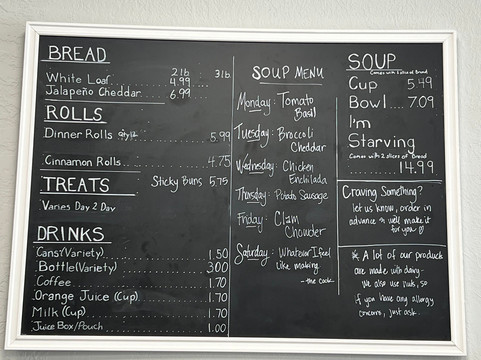 BREAD
2lb 3lb
White Loaf 4.99
Jalapeño Cheddar 6.99
ROLLS
Dinner Rolls 5.99
Cinnamon Rolls 4.75
TREATS Sticky Buns 5.75
Varies Day 2 Day
DRINKS
Cans (Variety) 1.50
Bottle (Variety) 3.00
Coffee 1.70
Orange Juice (Cup) 1.70
Milk (Cup) 1.70
Juice Box/Pouch 1.00
SOUP MENU
Monday: Tomato
Basil
Tuesday: Broccoli
Cheddar
Wednesday: Chicken
Enchilada
Thursday: Potato Sausage
Friday: Clam
Chowder
Saturday: Whatever I feel
like making
- the cook
SOUP
Comes with 1 slice of Bread
Cup 5.49
Bowl.... 7.09
I'm
Starving
Comes with 2 slices of Bread
14.99
Craving Something?
let us know, order in
advance & we'll make it
for you
* A lot of our product
are made with dairy-
We also use nuts, so
if you have any allergy
concerns, just ask.